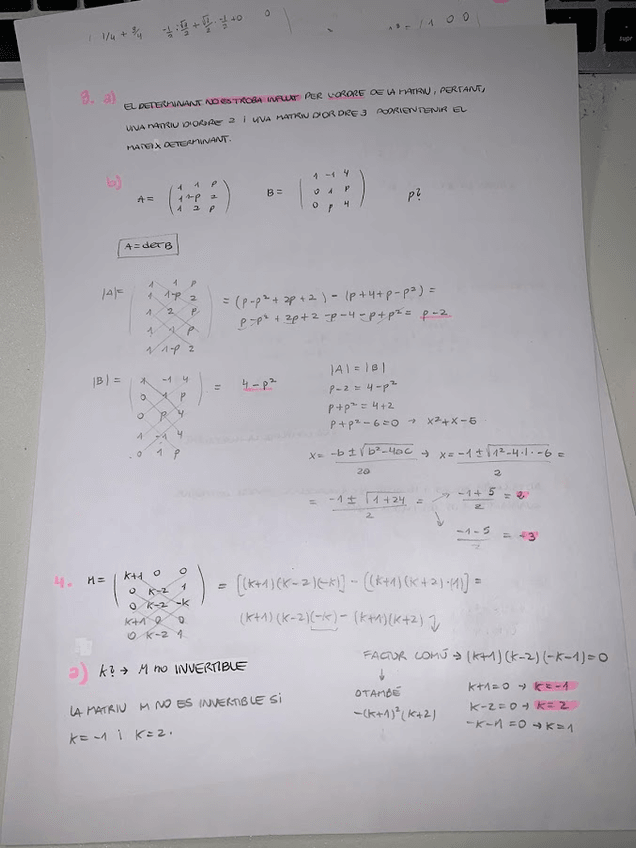 1/4 + 3/4
0
1 0 0
3. a) EL DETERMINANT NO ES TROBA INFLUIT PER L'ORDRE DE LA MATRIU, PERTANT,
UNA MATRIU D'ORDRE 2 I UNA MATRIU D'ORDRE 3 PODRIEN TENIR EL
MATEIX DETERMINANT.
b)
A= ( 1 1 p
1 1-p 2
1 2 p )
B= ( 1 -1 4
0 1 p
0 p 4 )
p?
A = det B
|A|= 1 1 p
1 1-p 2
1 2 p
1 1 p
1 1-p 2
= (p-p² + 2p + 2) - (p+4+p-p²) =
p-p² + 2p+2 -p-4-p+p² = p-2
|B| = 1 -1 4
0 1 p
0 p 4
1 -1 4
0 1 p
= 4-p²
|A| = |B|
p-2 = 4-p²
p+p² = 4+2
p+p²-6=0 → x²+x-6
x= -b ± √b²-4ac / 2a → x= -1 ± √1²-4·1·-6 / 2 =
= -1 ± √1+24 / 2 = → -1+5 / 2 = 2
↘ -1-5 / 2 = -3
4. M= ( k+1 0 0
0 k-2 1
0 k-2 -k )
k+1 0 0
0 k-2 1
= [(k+1)(k-2)(-k)] - [(k+1)(k+2)·(1)] =
(k+1)(k-2)(-k) - (k+1)(k+2)
a) k? → M no INVERTIBLE
LA MATRIU M NO ES INVERTIBLE SI
k= -1 i k=2.
FACTOR COMÚ → (k+1)(k-2)(-k-1)=0
↓
O TAMBÉ
-(k+1)²(k+2)
k+1=0 → k=-1
k-2=0 → k=2
-k-1=0 → k=1